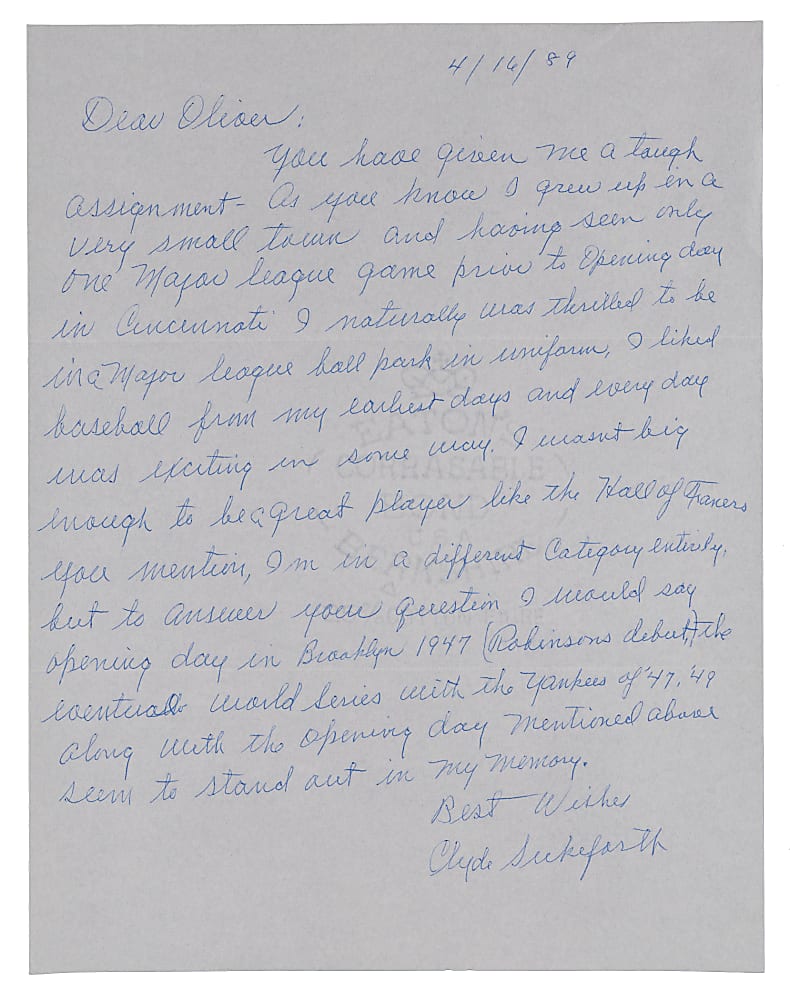 4/16/89
Dear Oliver:
You have given me a tough
assignment - As you know I grew up in a
very small town and having seen only
one Major league game prior to Opening day
in Cincinnati I naturally was thrilled to be
in a Major league ball park in uniform, I liked
baseball from my earliest days and every day
was exciting in some way. I wasnt big
enough to be a great player like the Hall of Famers
you mention, I'm in a different Category entirely,
but to answer your question I would say
opening day in Brooklyn 1947 (Robinsons debut,) the
eventual world series with the Yankees of '47, '49
along with the opening day mentioned above
seem to stand out in my memory.
Best Wishes
Clyde Sukeforth
EATON'S
CORRASABLE
BOND